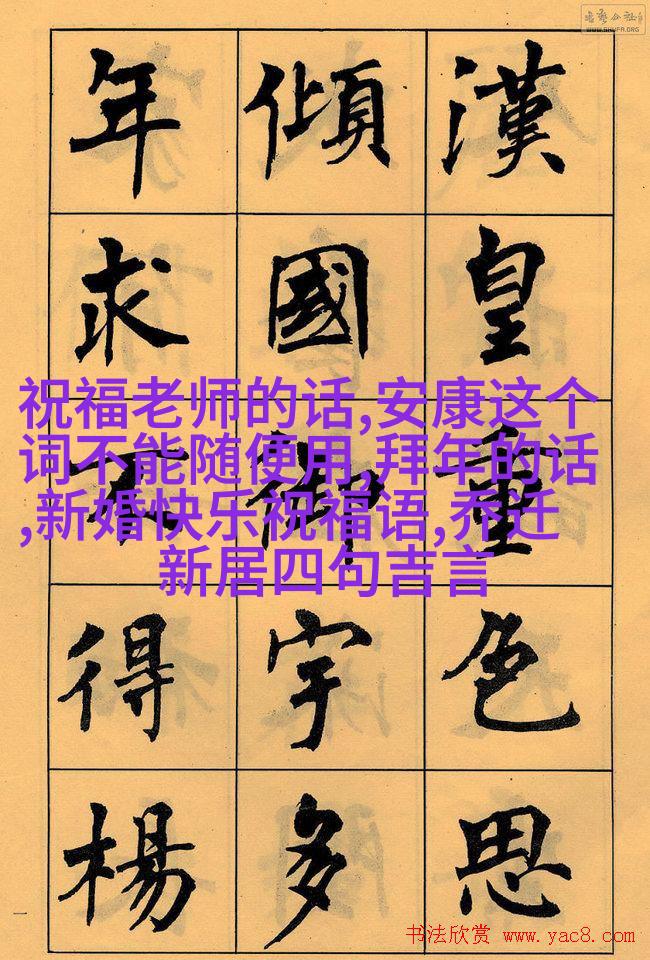 WWW.SHUFA.ORG
漢皇重色思
傾國御宇多
年求不得楊
祝福老师的话,安康这个
词不能随便用,拜年的话
,新婚快乐祝福语,乔迁
新居四句吉言
一
书法欣赏 www.yac8.com